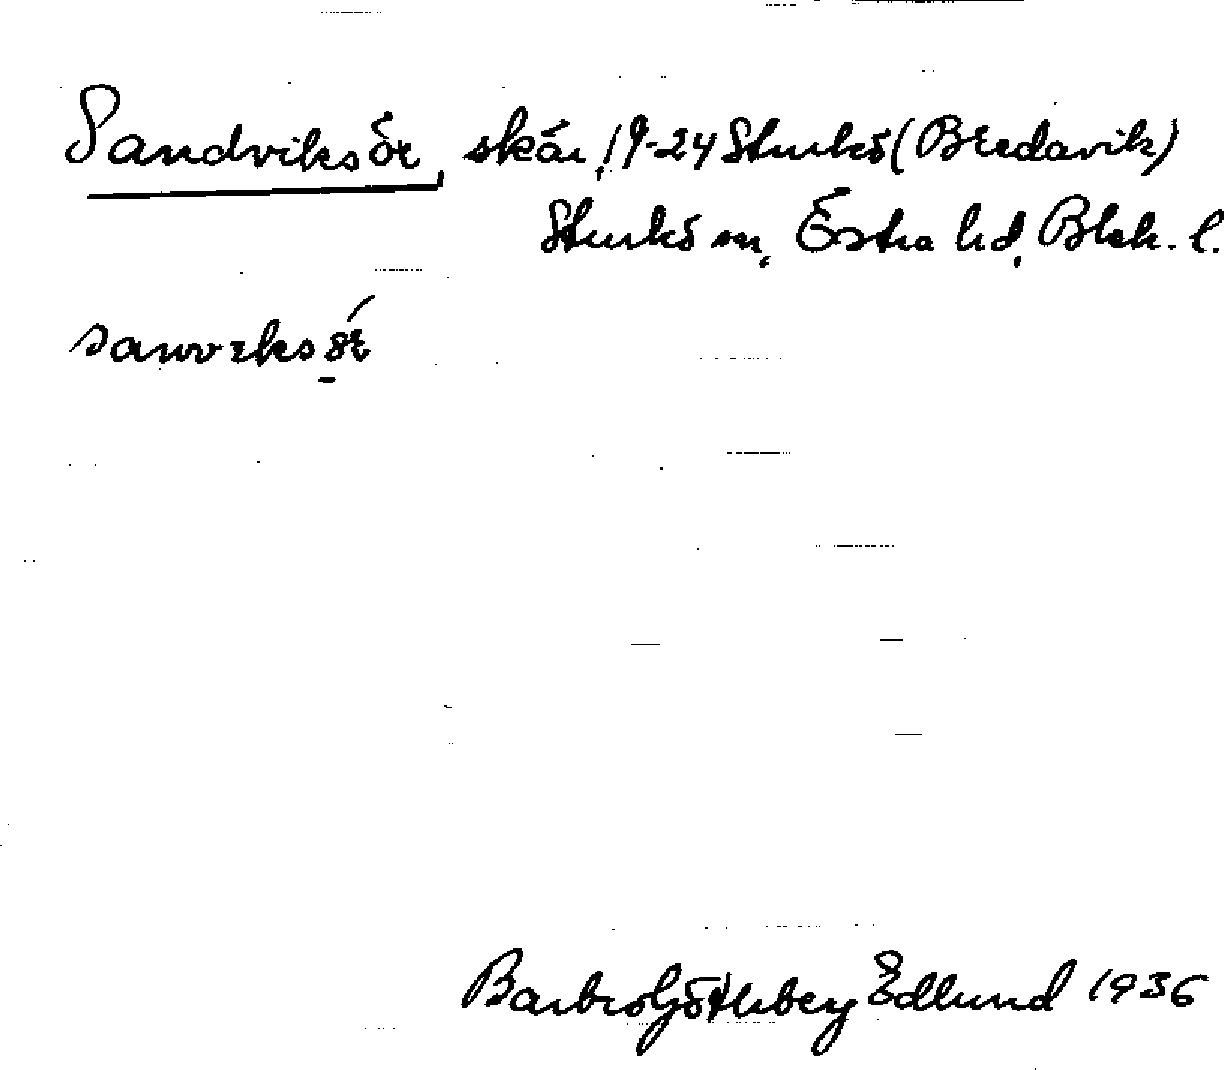 Sandviksör, skär, 19-24 Sturkö (Bredavik)
Sturkö sn, Östra hd, Blek. l.
Barbro Götherberg Edlund 1936